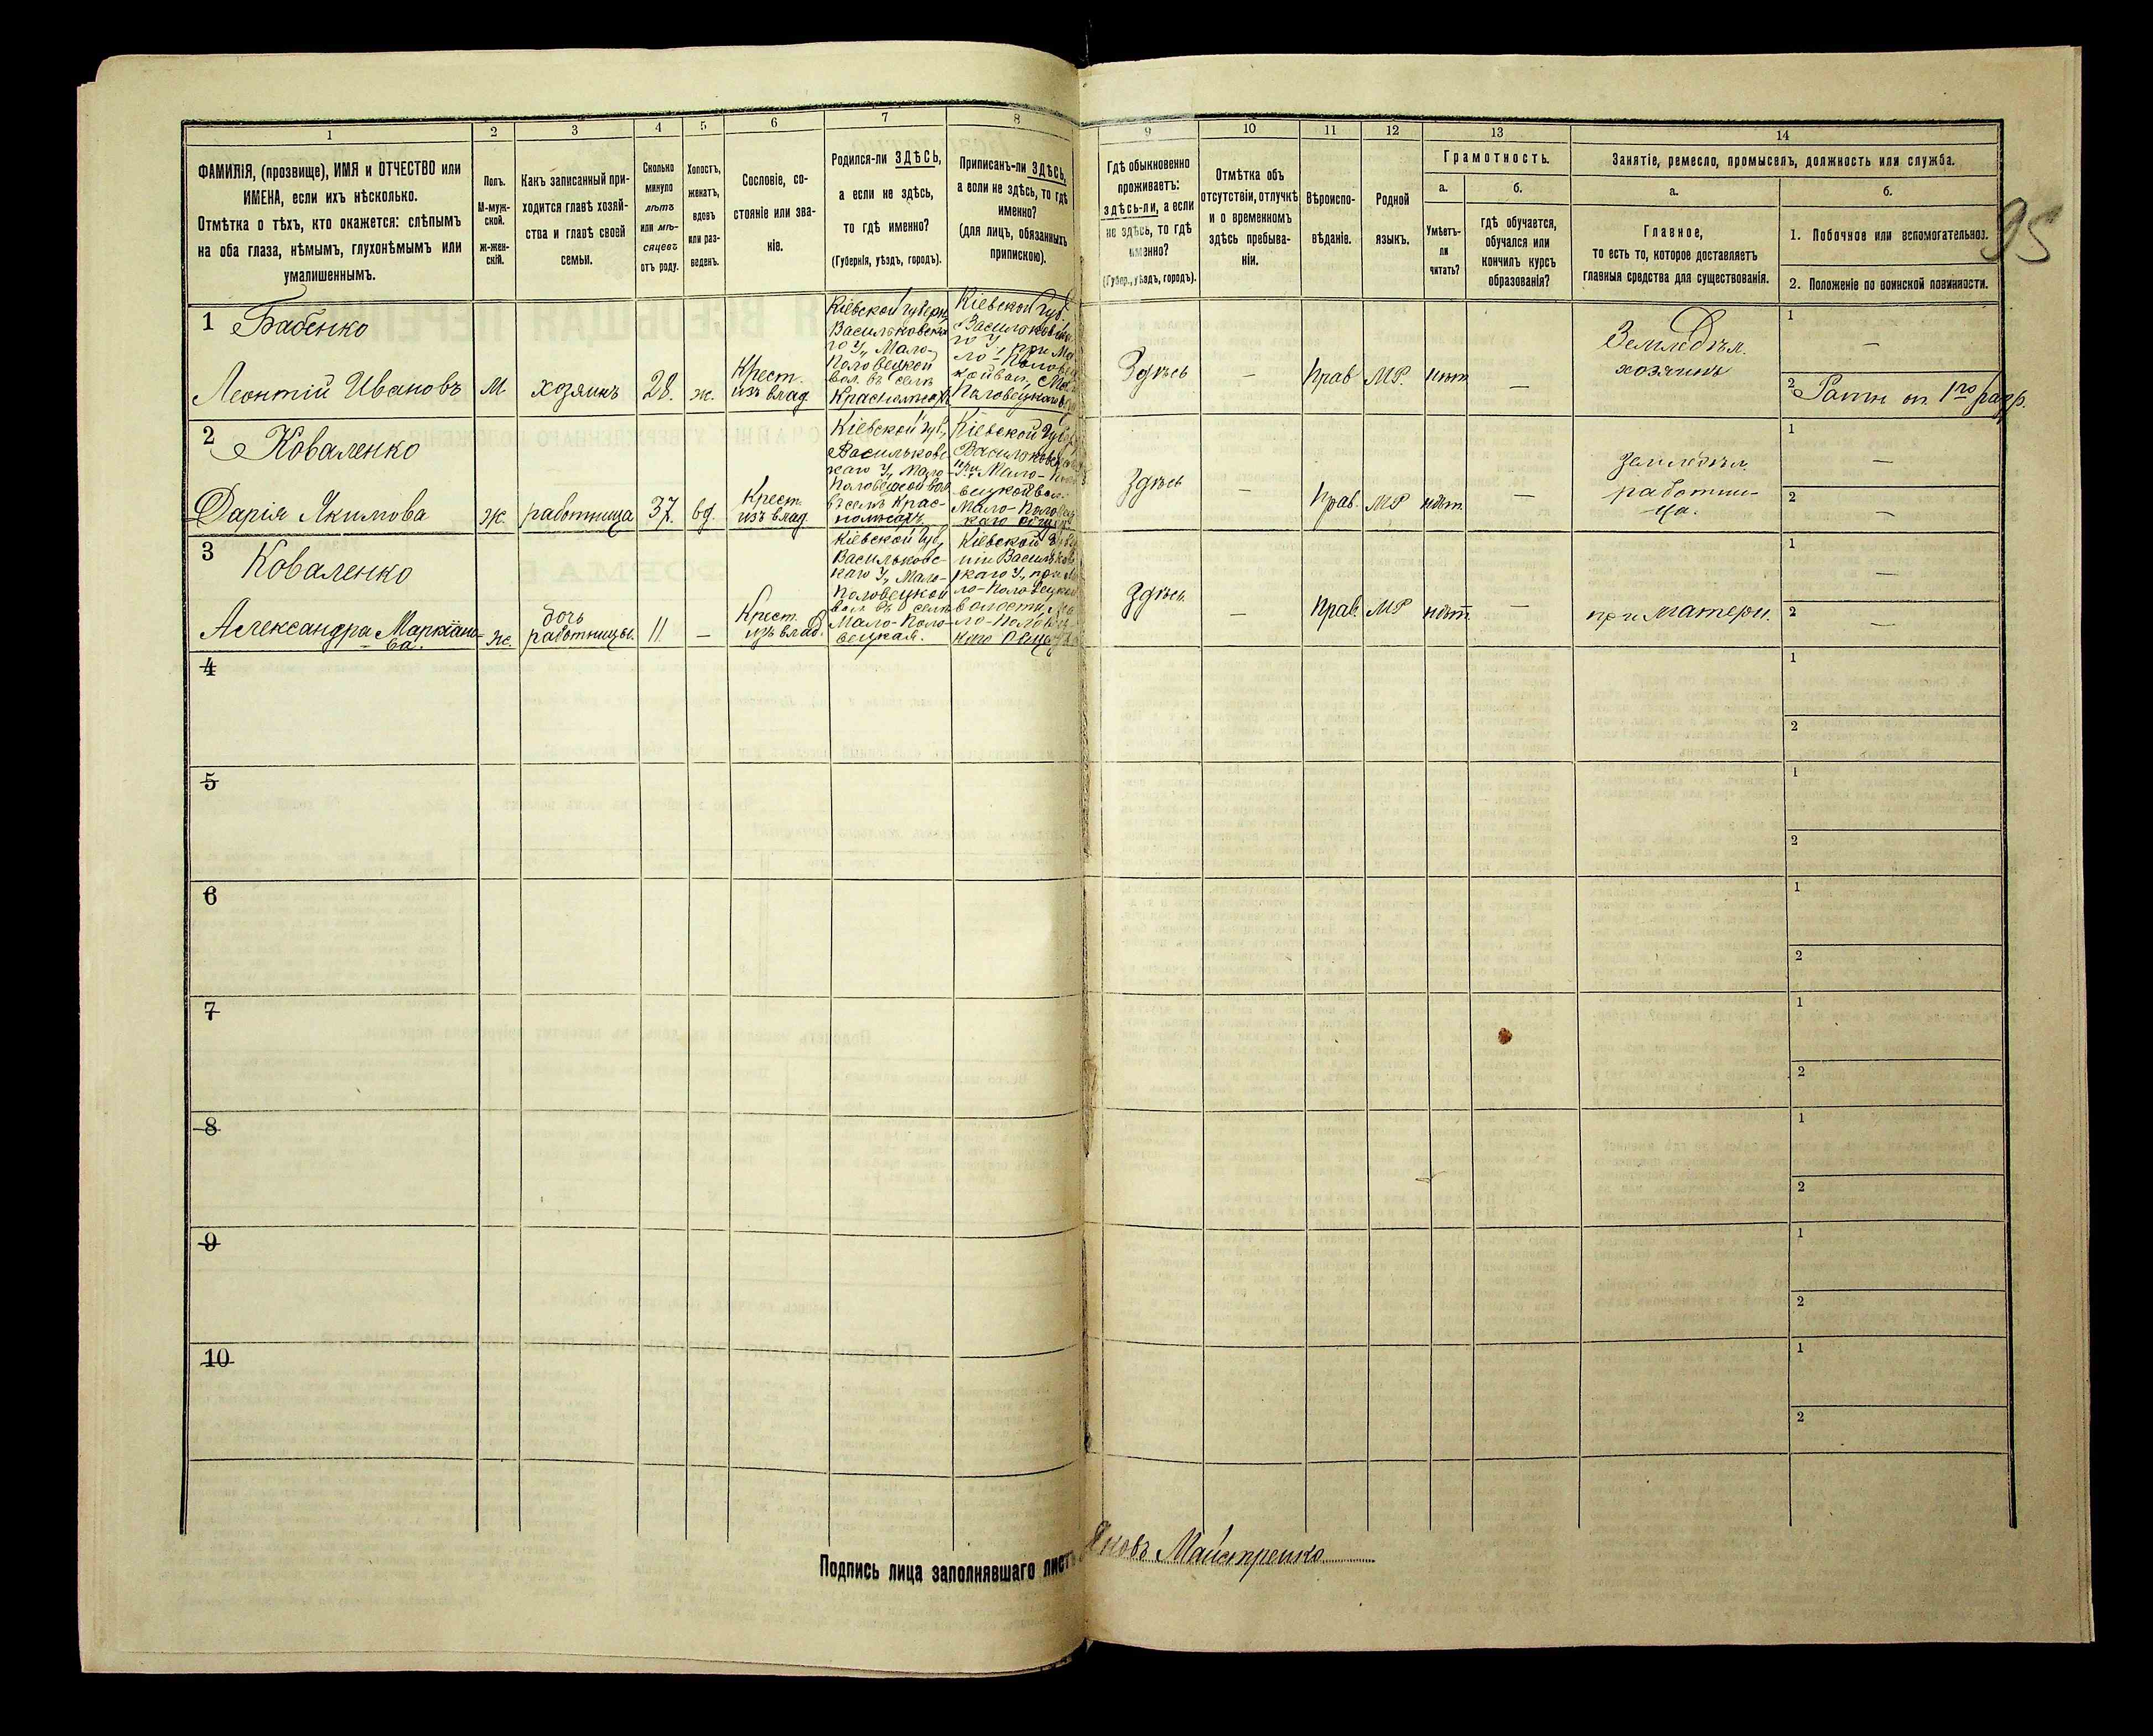 1 2 3 4 5 6 7 8
ФАМИЛІЯ, (прозвище), ИМЯ и ОТЧЕСТВО или
ИМЕНА, если ихъ нѣсколько.
Отмѣтка о тѣхъ, кто окажется: слѣпымъ
на оба глаза, нѣмымъ, глухонѣмымъ или
умалишеннымъ.
Полъ.
М-муж-
ской.
ж-жен-
скій.
Какъ записанный при-
ходится главѣ хозяй-
ства и главѣ своей
семьи.
Сколько
минуло
лѣтъ
или мѣ-
сяцевъ
отъ роду.
Холостъ,
женатъ,
вдовъ
или раз-
веденъ.
Сословіе, со-
стояніе или зва-
ніе.
Родился-ли ЗДѢСЬ,
а если не здѣсь,
то гдѣ именно?
(Губернія, уѣздъ, городъ).
Приписанъ-ли ЗДѢСЬ,
а если не здѣсь, то гдѣ
именно?
(для лицъ, обязанныхъ
припискою).
9 10 11 12 13 14
Гдѣ обыкновенно
проживаетъ:
здѣсь-ли, а если
не здѣсь, то гдѣ
именно?
(Губер., уѣздъ, городъ).
Отмѣтка объ
отсутствіи, отлучкѣ
и о временномъ
здѣсь пребыва-
ніи.
Вѣроиспо-
вѣданіе.
Родной
языкъ.
Грамотность.
а.
Умѣетъ-
ли
читать?
б.
гдѣ обучается,
обучался или
кончилъ курсъ
образованія?
Занятіе, ремесло, промыселъ, должность или служба.
а.
Главное,
то есть то, которое доставляетъ
главныя средства для существованія.
б.
1. Побочное или вспомогательное.
2. Положеніе по воинской повинности.
95
1 Бабенко
Леонтій Ивановъ
М.
хозяинъ
28.
ж.
Крест.
изъ влад.
Кіевской губерн.
Васильковска
го У., Мало-
Половецкой
вол. въ селѣ
Кіевской Губ.
Здѣсь
—
Прав.
МР.
нѣтъ
—
Земледѣл.
хозяинъ
1
—
2 Ратн. оп. 1го разр.
2 Коваленко
Дарія Якимова
ж.
работница
37.
вд.
Крест.
изъ влад.
Кіевской Губ.,
Васильковс-
каго У., Мало-
Половецкой вол.
въ селѣ Крас-
Кіевской Губер
Здѣсь
—
Прав.
МР
нѣт.
—
земледѣл.
работни-
ца.
1
—
2
—
3 Коваленко
Александра Маркіано-
ва.
ж.
дочь
работницы.
11.
—
Крест.
изъ влад.
Кіевской Губ.,
Васильковс-
каго У., Мало-
Половецкой
вол. въ селѣ
Мало-Поло-
вецкая.
Здѣсь
—
Прав.
МР
нѣт.
—
при матери.
1
—
2
—
4
1
2
5
1
2
6
1
2
7
1
2
8
1
2
9
1
2
10
1
2
Подпись лица заполнявшаго листъ Яковъ Майстренко